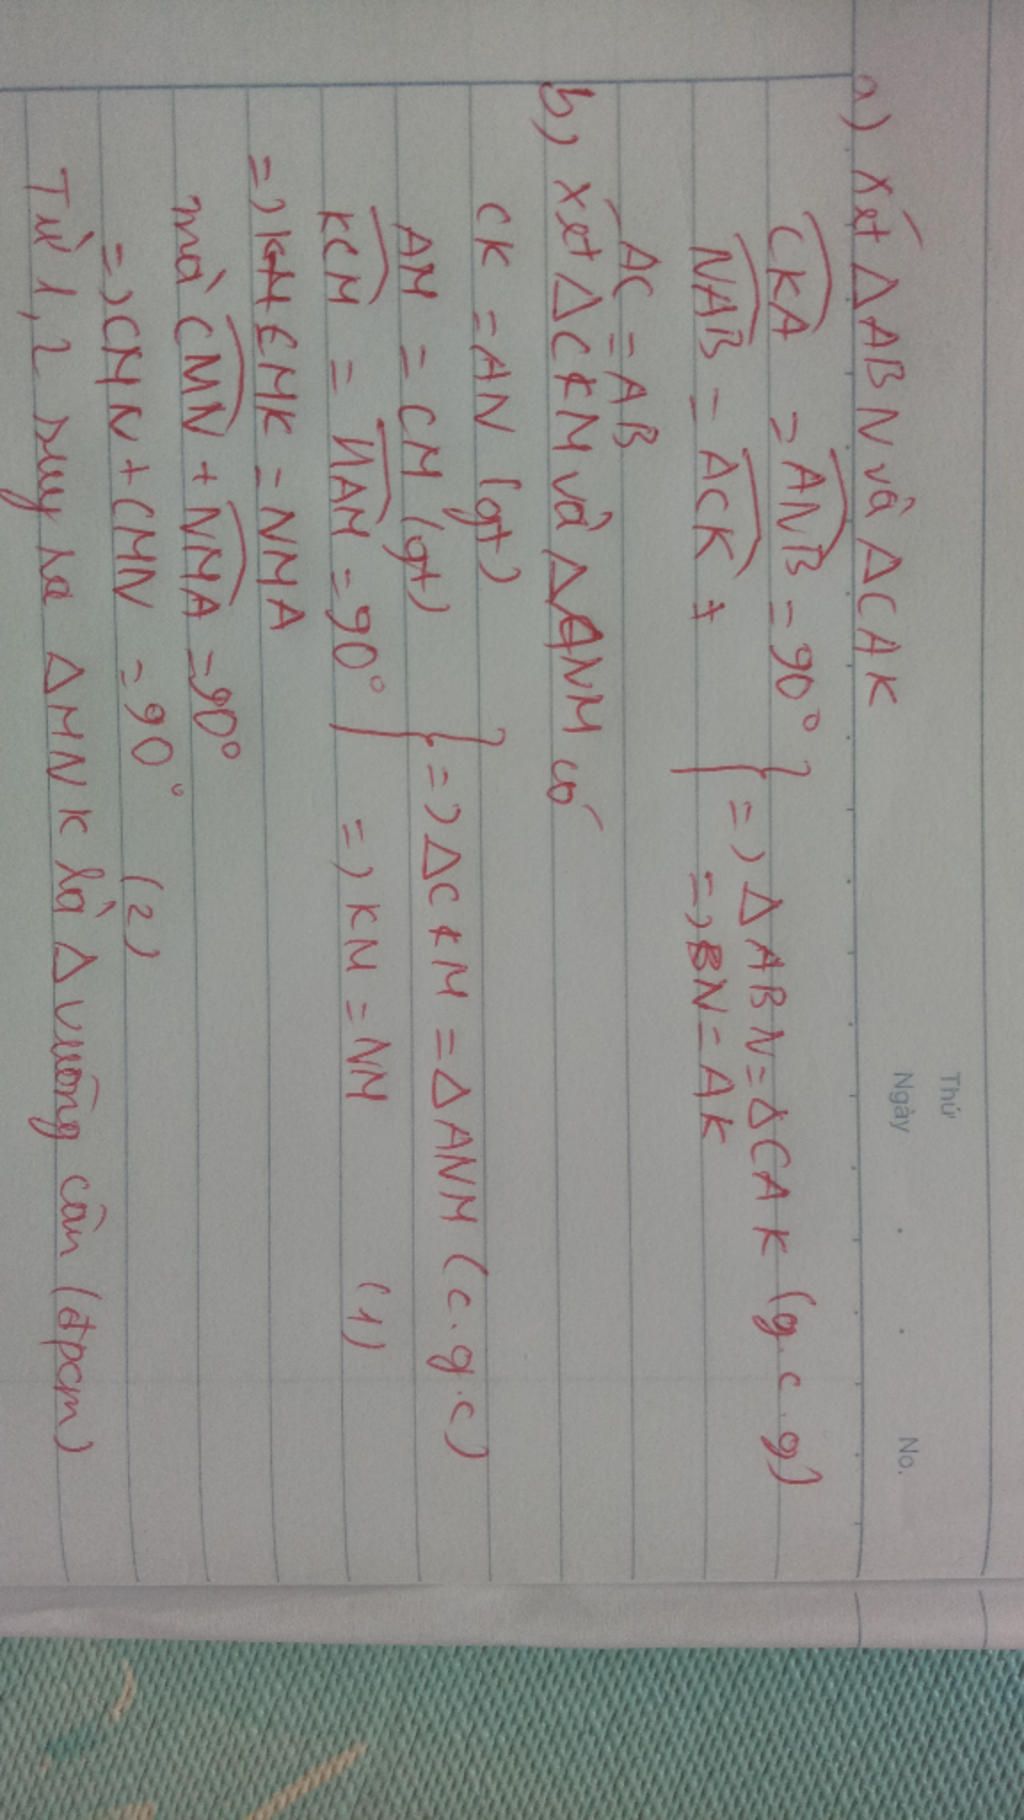 Thứ
Ngày . . No.
a) Xét Δ ABN và Δ CAK
CKA = ANB = 90°
NAB = ACK
AC = AB
} => Δ ABN = Δ CAK (g.c.g)
=> BN = AK
b, xét Δ CKM và Δ ANM có
CK = AN (gt)
AM = CM (gt)
KCM = NAM = 90°
} => Δ CKM = Δ ANM (c.g.c)
=> KM = NM (1)
=> CMK = NMA
mà CMN + NMA = 90°
=> CMN + CMN = 90° (2)
Từ 1, 2 suy ra Δ MNK là Δ vuông cân (đpcm)